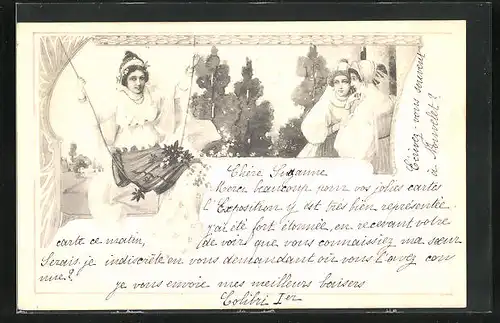 Chère Suzanne
Merci beaucoup pour vos jolies cartes
l'Exposition y est très bien représentée
j'ai été fort étonnée, en recevant votre
carte ce matin, de voir que vous connaissiez ma sœur
Serais je indiscrète en vous demandant où vous l'avez con
nue?
je vous envoie mes meilleurs baisers
Colibri Ier
Écrivez-vous souvent
à ?